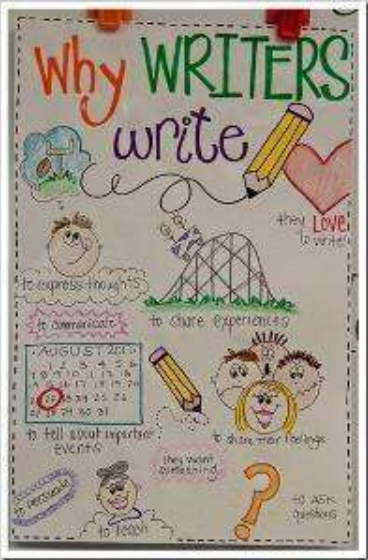 Why WRITERS
write
they LOVE
to write!
to express thoughts
to communicate
to share experiences
AUGUST
to tell about important
events
to share their feelings
they want
something
to persuade
to teach
to ASK
questions